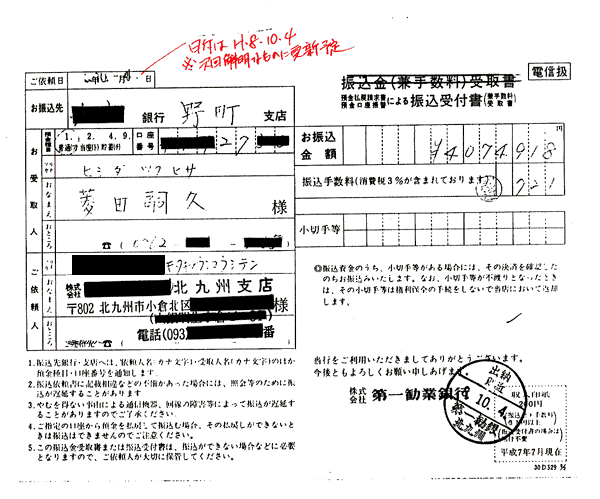 日付は H.8.10.4
電信扱
ご依頼日
日
振込金(兼手数料)受取書
預金払戻請求書
預金口座振替による振込受付書(兼手数料受取書)
お振込先
銀行 野町 支店
預金種目
1. 2. 4. 9.
口座番号
お振込金額
¥4074918
振込手数料(消費税3%が含まれております)
721
お受取人
ヒシダ ツグヒサ
おなまえ
菱田嗣久 様
おところ
小切手等
ご依頼人
キタキュウシュウシテン
株式会社
北九州支店
〒802 北九州市小倉北区
様
電話(093)
◎振込資金のうち、小切手等がある場合には、その決済を確認した
のちお振込みいたします。なお、小切手等が不渡りとなったとき
は、その小切手等は権利保全の手続をしないで当店において返却
します。
1.振込先銀行・支店へは、依頼人名(カナ文字)・受取人名(カナ文字)のほか
預金種目・口座番号を通知します。
2.振込依頼書に記載相違などの不備があった場合には、照会等のために振込
が遅延することがあります
3.やむを得ない事由による通信機器、回線の障害等によって振込が遅延す
ることがありますのでご了承ください。
4.ご指定の口座から預金を払戻して振込む場合、その払戻しができないとき
は振込はできませんのでご注意ください。
5.この振込金受取書または振込受付書は、振込ができない場合などに必要
となりますので、ご依頼人が大切に保管してください。
当行をご利用いただきましてありがとうございます。
今後ともよろしくお願い申しあげます。
株式会社 第一勧業銀行
出納
8.10.4
第一勧銀
北九州
収入印紙
200円
平成7年7月現在
30D329